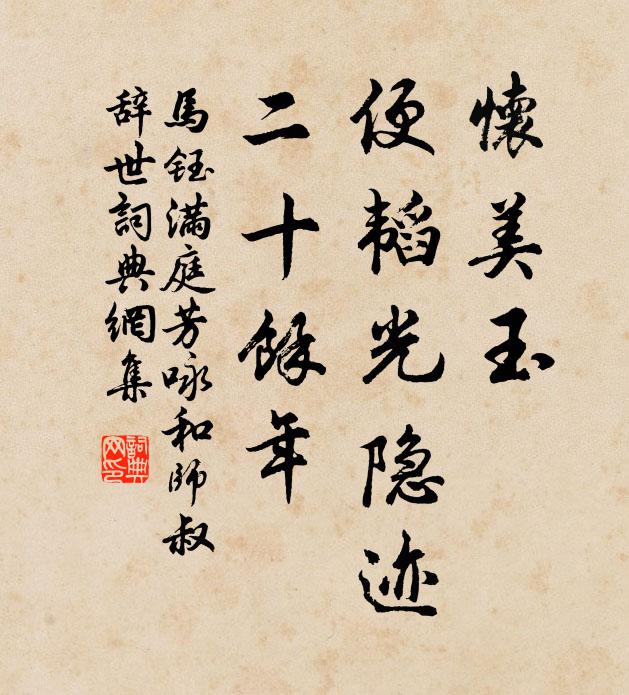 懷美玉
便韜光隐迹
二十餘年
馬鈺滿庭芳咏和師叔
辭世詞典網集
詞典网印